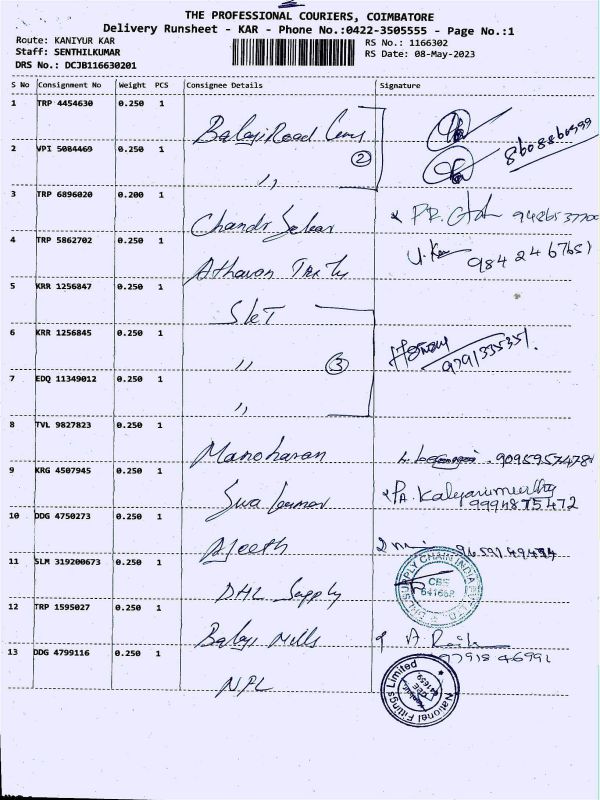 THE PROFESSIONAL COURIERS, COIMBATORE
Delivery Runsheet - KAR - Phone No.:0422-3505555 - Page No.:1
Route: KANIYUR KAR
RS No.: 1166302
Staff: SENTHILKUMAR
RS Date: 08-May-2023
DRS No.: DCJB116630201
S No Consignment No Weight PCS Consignee Details Signature
1 TRP 4454630 0.250 1
Balaji Road
8608860999
2 VPI 5084469 0.250 1
②
,,
3 TRP 6896020 0.200 1
Chandr Sekar
4 TRP 5862702 0.250 1
9842467651
5 KRR 1256847 0.250 1
6 KRR 1256845 0.250 1
③
9791335351.
,,
7 EDQ 11349012 0.250 1
,,
8 TVL 9827823 0.250 1
Manoharan
9 KRG 4507945 0.250 1
Siva Kumar
9994875472
10 DDG 4750273 0.250 1
Ajeeth
11 SLM 319200673 0.250 1
SUPPLY CHAIN INDIA
CBE
641658
DHL Supply
12 TRP 1595027 0.250 1
Balaji Mills
9791846991
13 DDG 4799116 0.250 1
NFL
National Fittings Limited